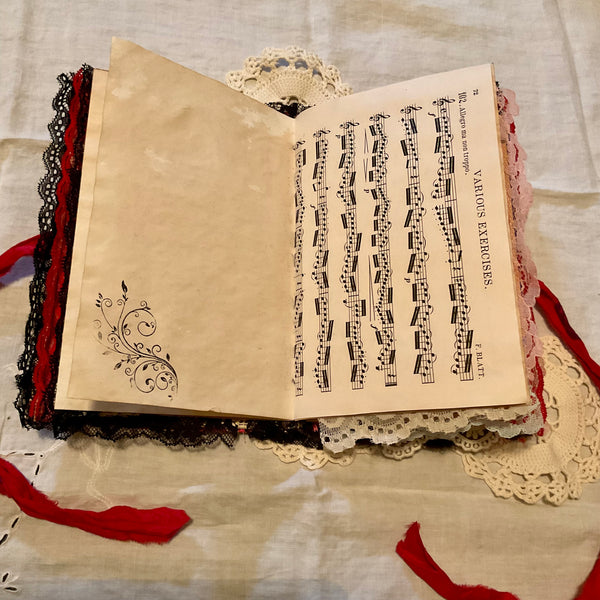 72
VARIOUS EXERCISES.
F. BLATT.
102. Allegro ma non troppo.